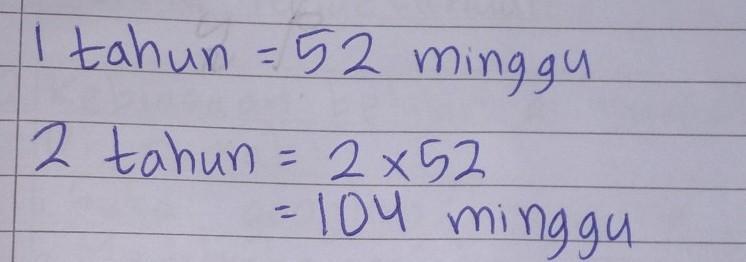 1 tahun = 52 minggu
2 tahun = 2 x 52
= 104 minggu